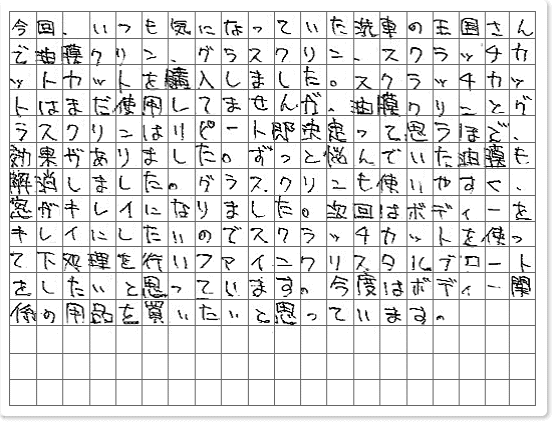 今回、いつも気になっていた洗車の王国さん
で油膜クリン、グラスクリン、スクラッチカ
ットカットを購入しました。スクラッチカッ
トはまだ使用してませんが、油膜クリンとグ
ラスクリンはリピート即決定って思うほど、
効果がありました。ずっと悩んでいた油膜も
解消しました。グラスクリンも使いやすく、
窓がキレイになりました。次回はボディーを
キレイにしたいのでスクラッチカットを使っ
て下処理を行いファインクリスタルデロート
をしたいと思っています。今度はボディー関
係の用品を買いたいと思っています。